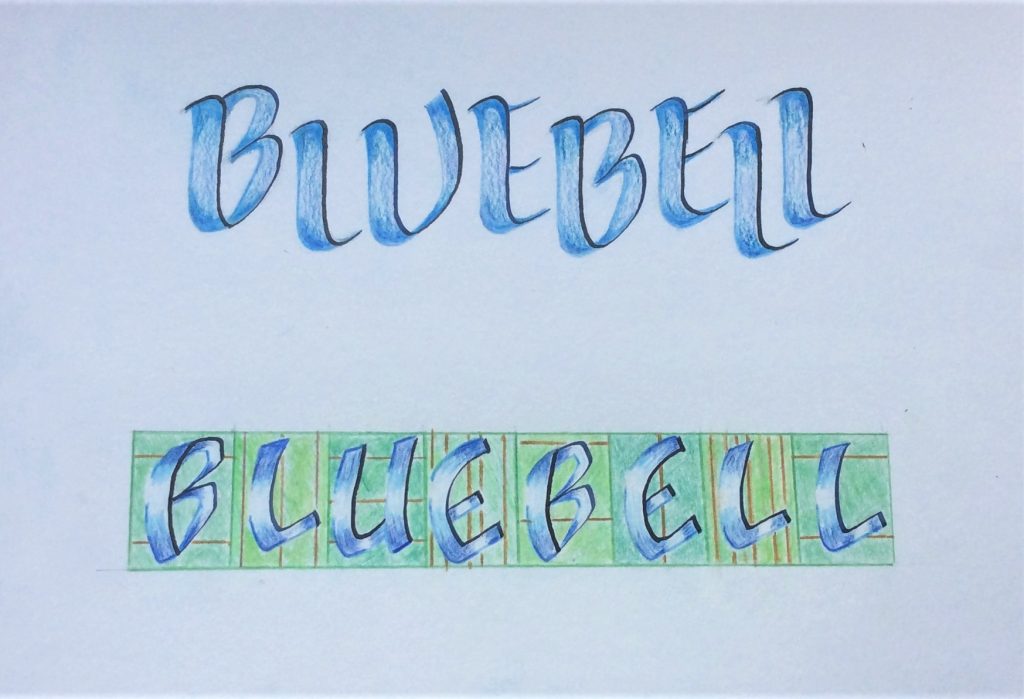 BLUEBELL
BLUEBELL